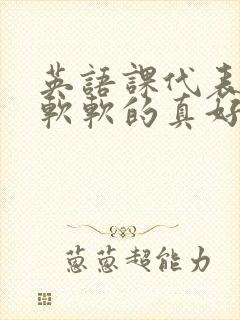 英語課代表
軟軟的真好
蔥蔥超能力